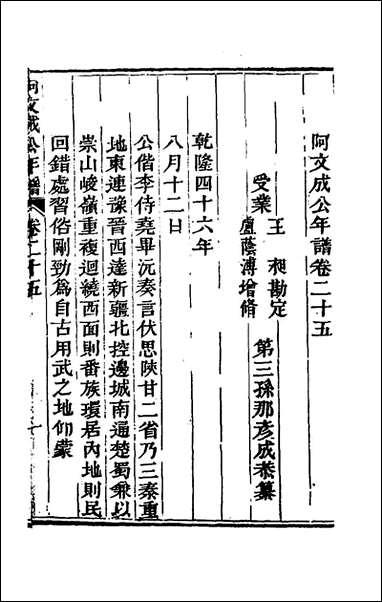 阿文成公年譜卷二十五
第三孫那彥成恭纂
受業
王昶勘定
盧蔭溥增修
乾隆四十六年
八月十二日
公偕李侍堯畢沅奏言伏思陝甘二省乃三秦重
地東連豫晉西達新疆北控邊城南通楚蜀兼以
崇山峻嶺重複迴繞西面則番族環居內地則民
回錯處習俗剛勁為自古用武之地仰蒙
阿文成公年譜
卷二十五